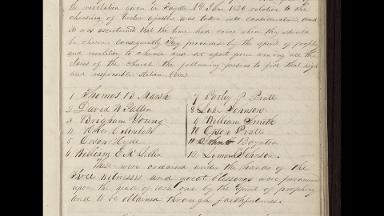 the revelation given in Fayette Sep Nov 1830 relative to the
choosing of twelve apostles was taken into consideration, and
it was ascertained that the time had come when they should
be chosen consequently they proceeded by the spirit of prophecy
and revelation to choose and set apart from among all the
elders of the church the following persons to fill that high
and responsible station. Viz.
1 Thomas B Marsh 7 Parley P Pratt
2 David W Patten 8 Luke Johnson
3 Brigham Young 9 William Smith
4 Heber C Kimball 10 Orson Pratt
5 Orson Hyde 11 John F Boynton
6 William E McLellin 12 Lyman Johnson
These were ordained under the hands of the
three witnesses and great blessings were pronounced
upon the head of each one by the spirit of prophecy
and to be obtained through faithfulness.